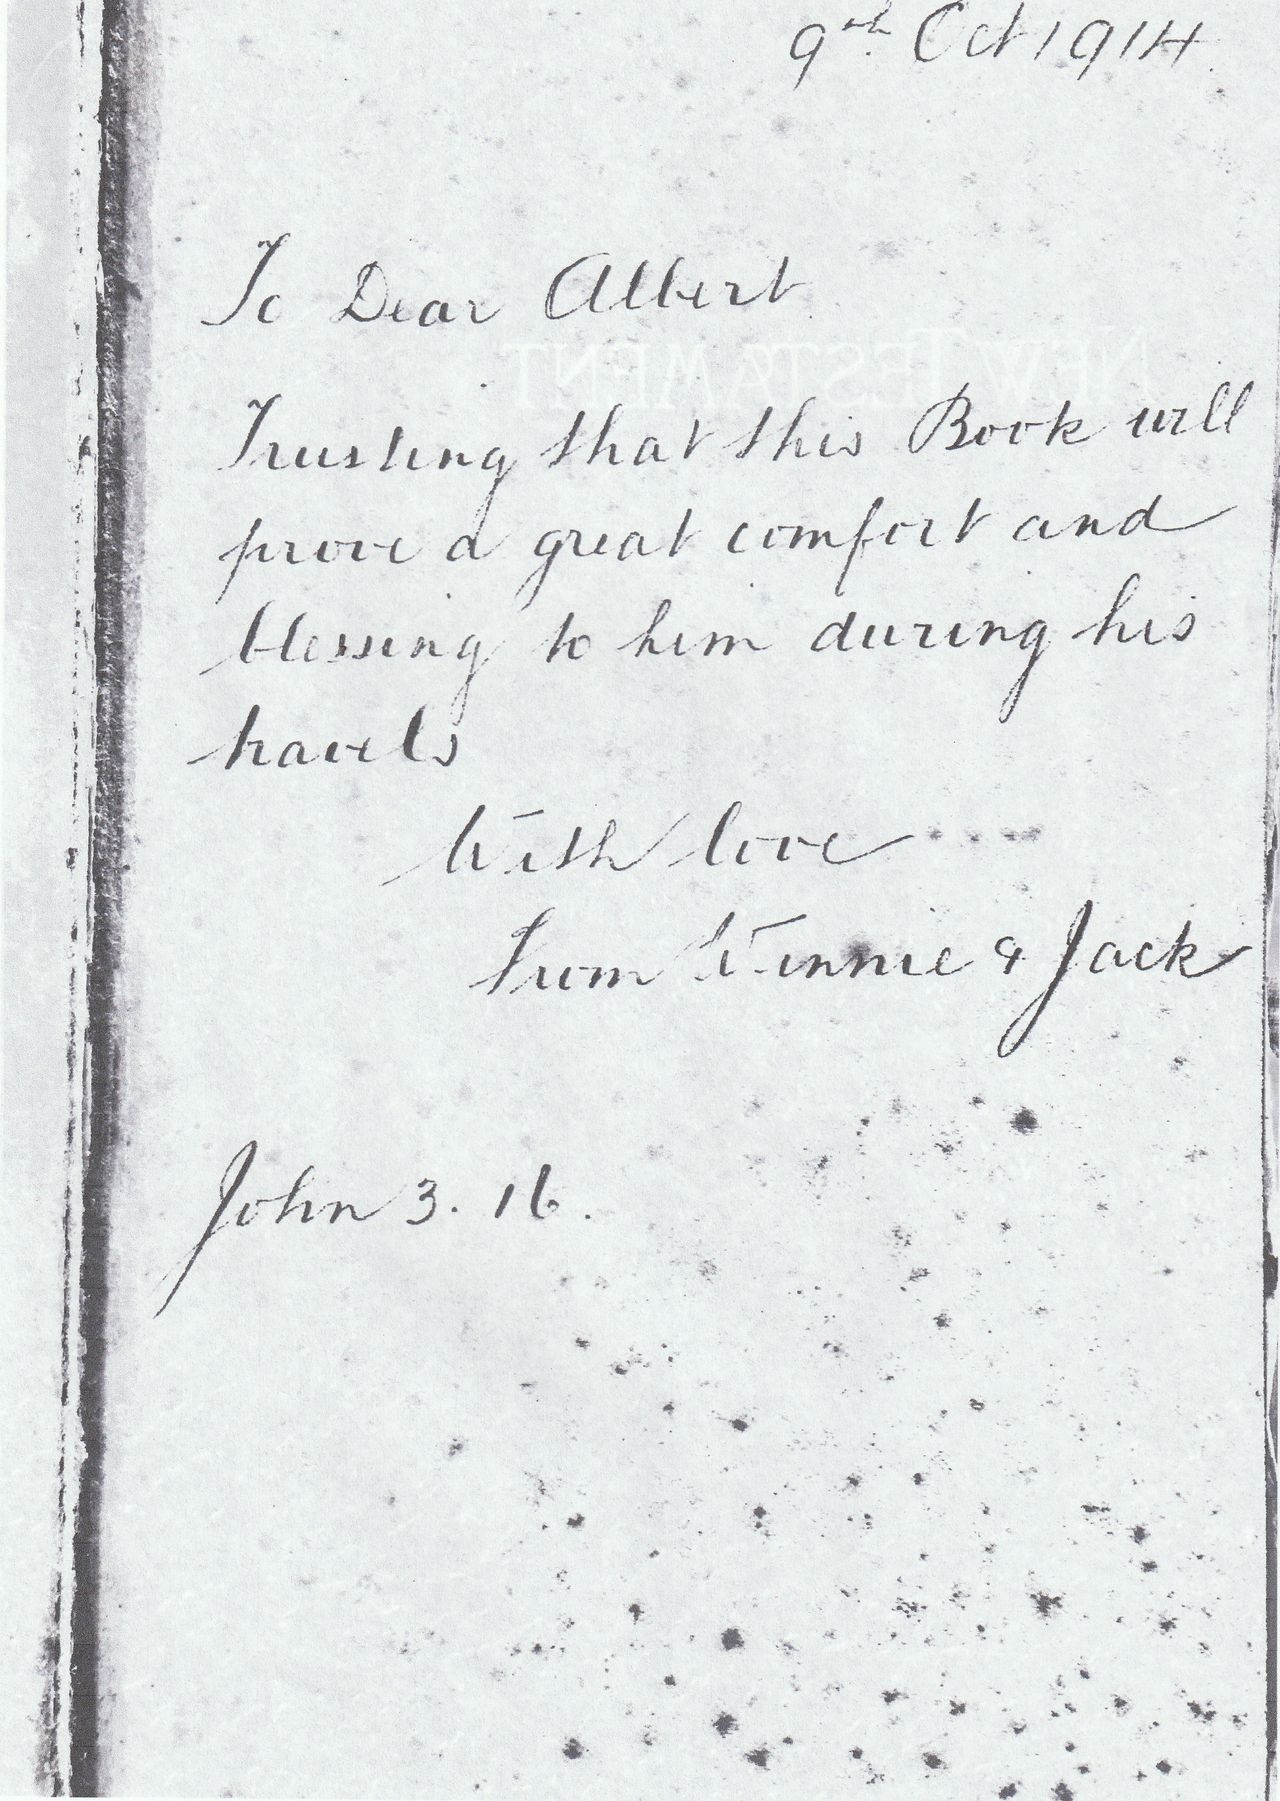 9th Oct 1914.
To Dear Albert.
NEW TESTAMENT
Trusting that this Book will
prove a great comfort and
blessing to him during his
travels
With love
From Winnie & Jack
John 3. 16.